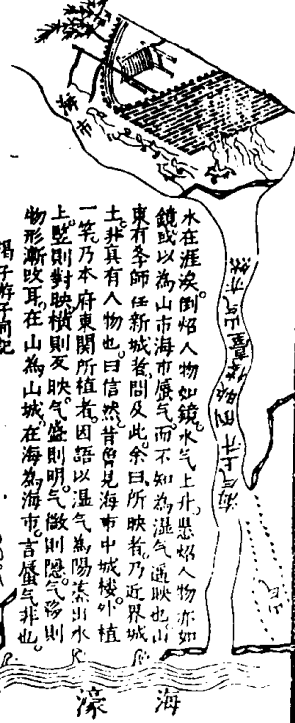 海市
水在涯涘倒照人物如鏡。水气上升悬照人物亦如
鏡或以為山市海市蜃气。而不知為湿气遥映也山
東有李師任新城者。問及此余曰所映者乃近界城
土非真有人物也。曰信然。昔曾見海市中城楼外植
一竿乃本府東関所植者。因語以湿气為陽蒸出水
上竪則對映。横則反映。气盛則明。气微則隐。气移則
物形漸改耳。在山為山城。在海為海市。言蜃气非也。
揭子游子同記
海气上升倒映楼臺山气亦然
海濠